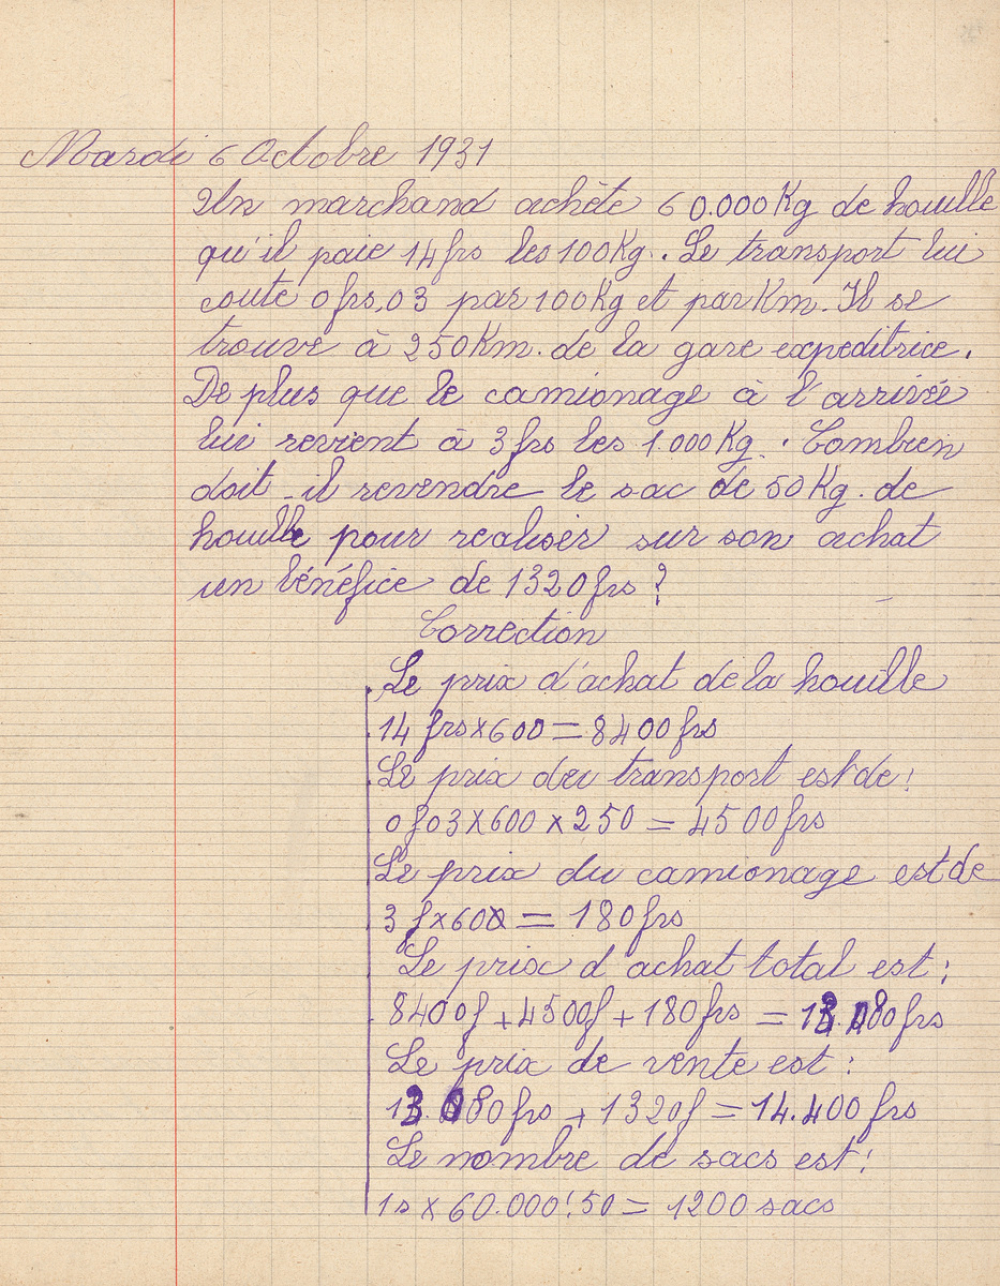 Mardi 6 Octobre 1931
Un marchand achète 60.000Kg de houille
qu'il paie 14frs les 100Kg. Le transport lui
coute 0frs,03 par 100Kg et par Km. Il se
trouve à 250Km. de la gare expeditrice.
De plus que le camionage à l'arrivée
lui revient à 3frs les 1.000Kg. Combien
doit-il revendre le sac de 50Kg. de
houille pour realiser sur son achat
un bénéfice de 1320frs?
Correction
Le prix d'achat de la houille
14 frs x 600 = 8400frs
Le prix du transport est de:
0f03 x 600 x 250 = 4500frs
Le prix du camionage est de
3f x 60 = 180frs
Le prix d'achat total est:
8400f + 4500f + 180frs = 13.080frs
Le prix de vente est:
13.080frs + 1320f = 14.400frs
Le nombre de sacs est:
1s x 60.000:50 = 1200 sacs